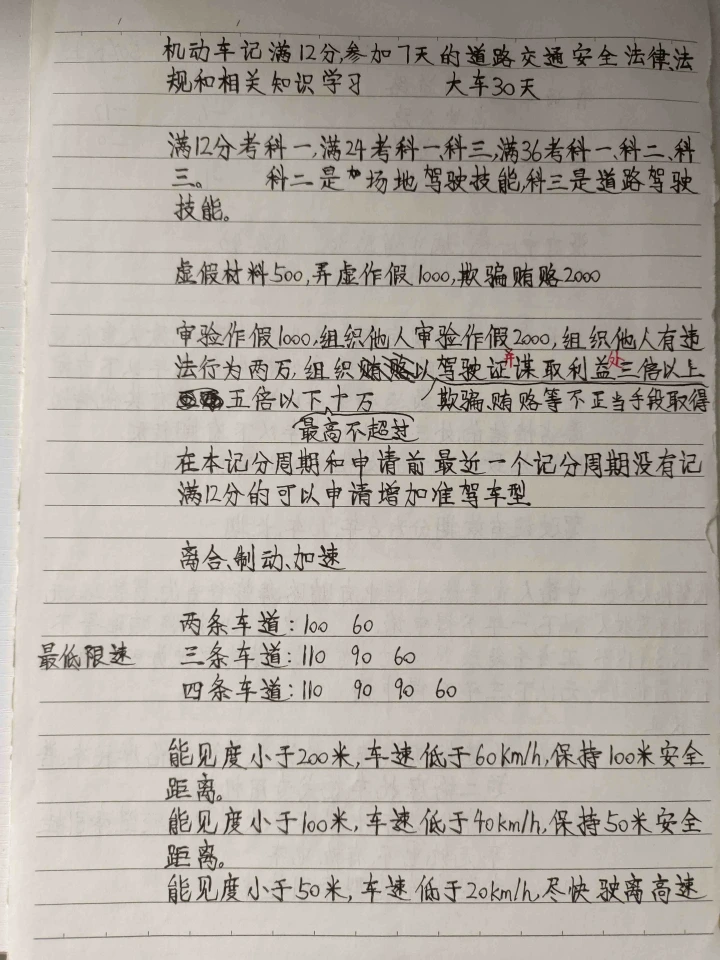 机动车记满12分,参加7天的道路交通安全法律、法
规和相关知识学习 大车30天
满12分考科一,满24考科一、科三,满36考科一、科二、科
三。 科二是场地驾驶技能,科三是道路驾驶
技能。
虚假材料500,弄虚作假1000,欺骗贿赂2000
审验作假1000,组织他人审验作假2000,组织他人有违
法行为两万,组织以驾驶证并谋取利益处三倍以上
五倍以下十万 欺骗、贿赂等不正当手段取得
最高不超过
在本记分周期和申请前最近一个记分周期没有记
满12分的可以申请增加准驾车型
离合、制动、加速
两条车道:100 60
最低限速 三条车道:110 90 60
四条车道:110 90 90 60
能见度小于200米,车速低于60km/h,保持100米安全
距离。
能见度小于100米,车速低于40km/h,保持50米安全
距离。
能见度小于50米,车速低于20km/h,尽快驶离高速